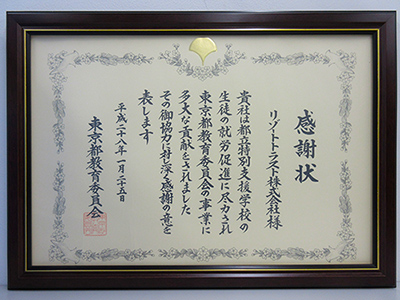 感謝状
リゾートトラスト株式会社様
貴社は都立特別支援学校の
生徒の就労促進に尽力され
東京都教育委員会の事業に
多大な貢献をされました
その御協力に対し深く感謝の意を
表します
平成二十八年一月二十五日
東京都教育委員会